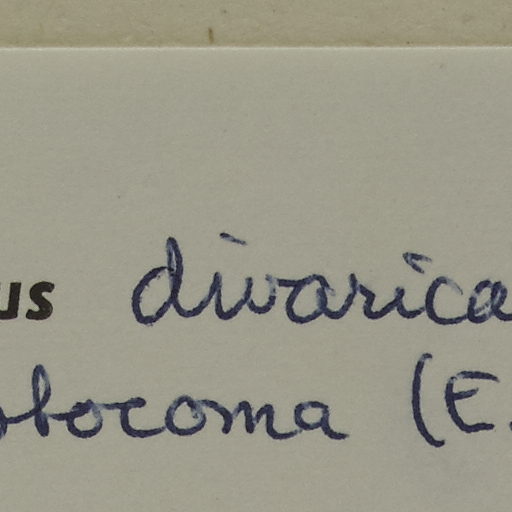 us divarica
obocoma (E.